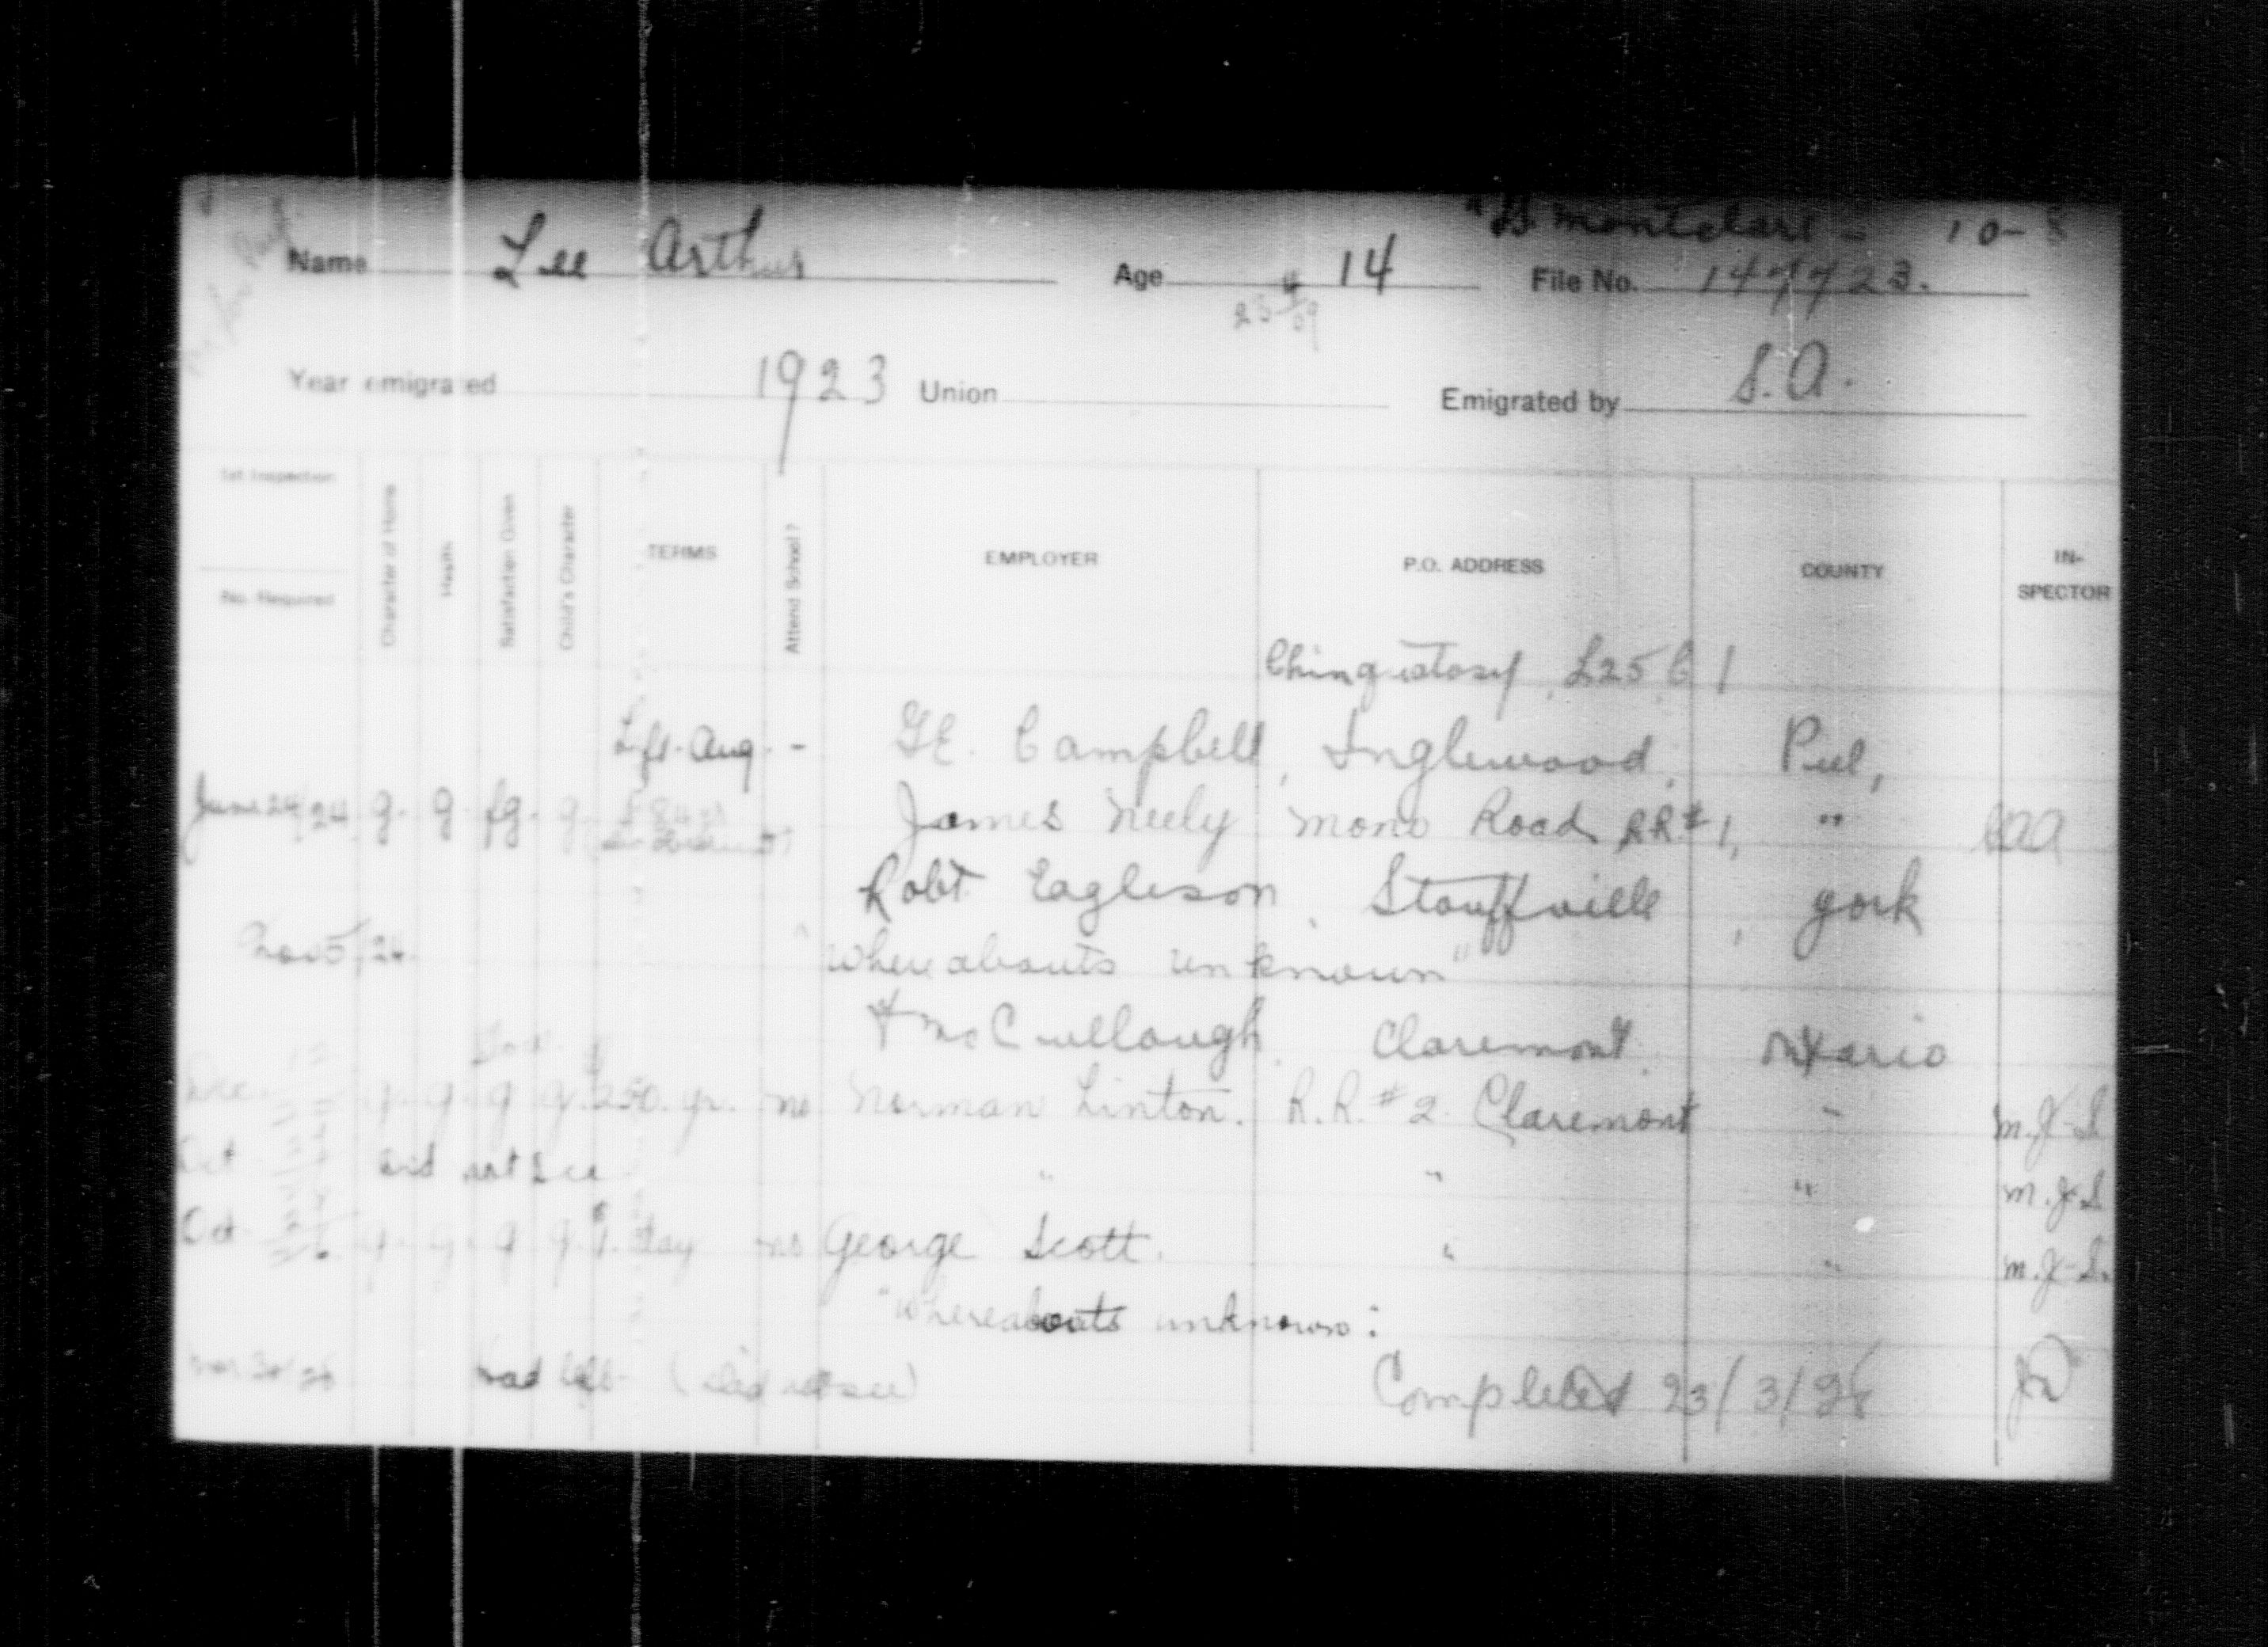 "SS. Montclare - 10-8
Name Lee Arthur Age 14 File No. 147723.
23/4/09
Year emigrated 1923 Union Emigrated by S.A.
1st Inspection
No. Required
Character of Home
Health
Satisfaction Given
Child's Character
TERMS
Attend School?
EMPLOYER
P.O. ADDRESS
COUNTY
IN-
SPECTOR
L25 C 1
Left. Aug. - Campbell, Inglewood, Peel,
June 24/24 g. g fg. g. James Neely Mono Road RR#1, "
Robt Eagleson, Stouffville, York
Nov 5/24. "Whereabouts unknown"
McCullough, Claremont, Ontario
Dec. g. g. g g. $250. yr. no Norman Linton. R.R. #2 Claremont " M.J.S.
Oct did not see " " " M.J.S.
Oct g. g. g g. $1. day no George Scott. " " M.J.S.
"Whereabouts unknown:
had left (did not see) Completed 23/3/28